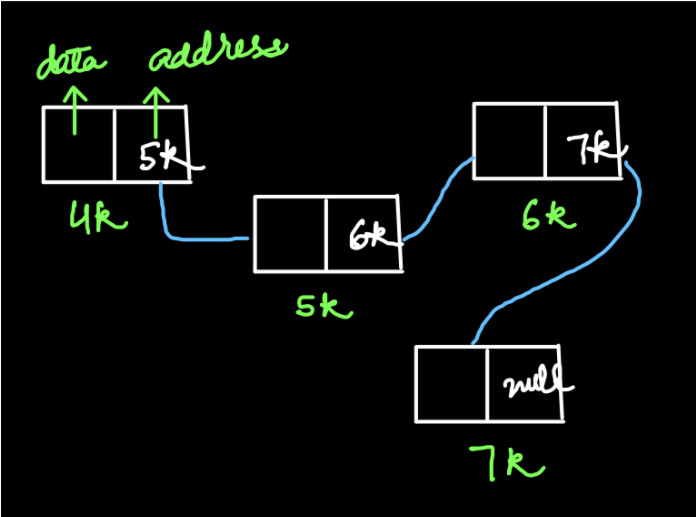 data address
5k
4k
6k
5k
7k
6k
null
7k